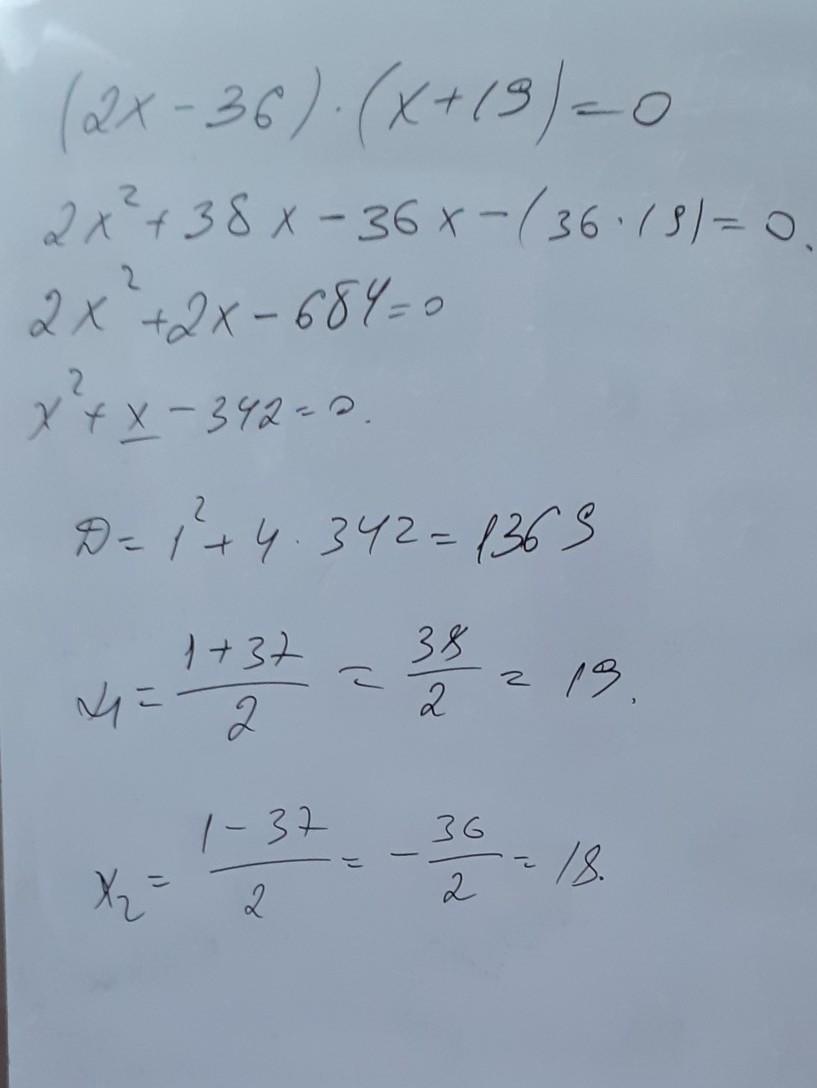 (2x - 36) · (x + 19) = 0
2x² + 38x - 36x - (36 · 19) = 0.
2x² + 2x - 684 = 0
x² + x - 342 = 0.
D = 1² + 4 · 342 = 1369
x₁ = (1 + 37)/2 = 38/2 = 19.
x₂ = (1 - 37)/2 = -36/2 = 18.